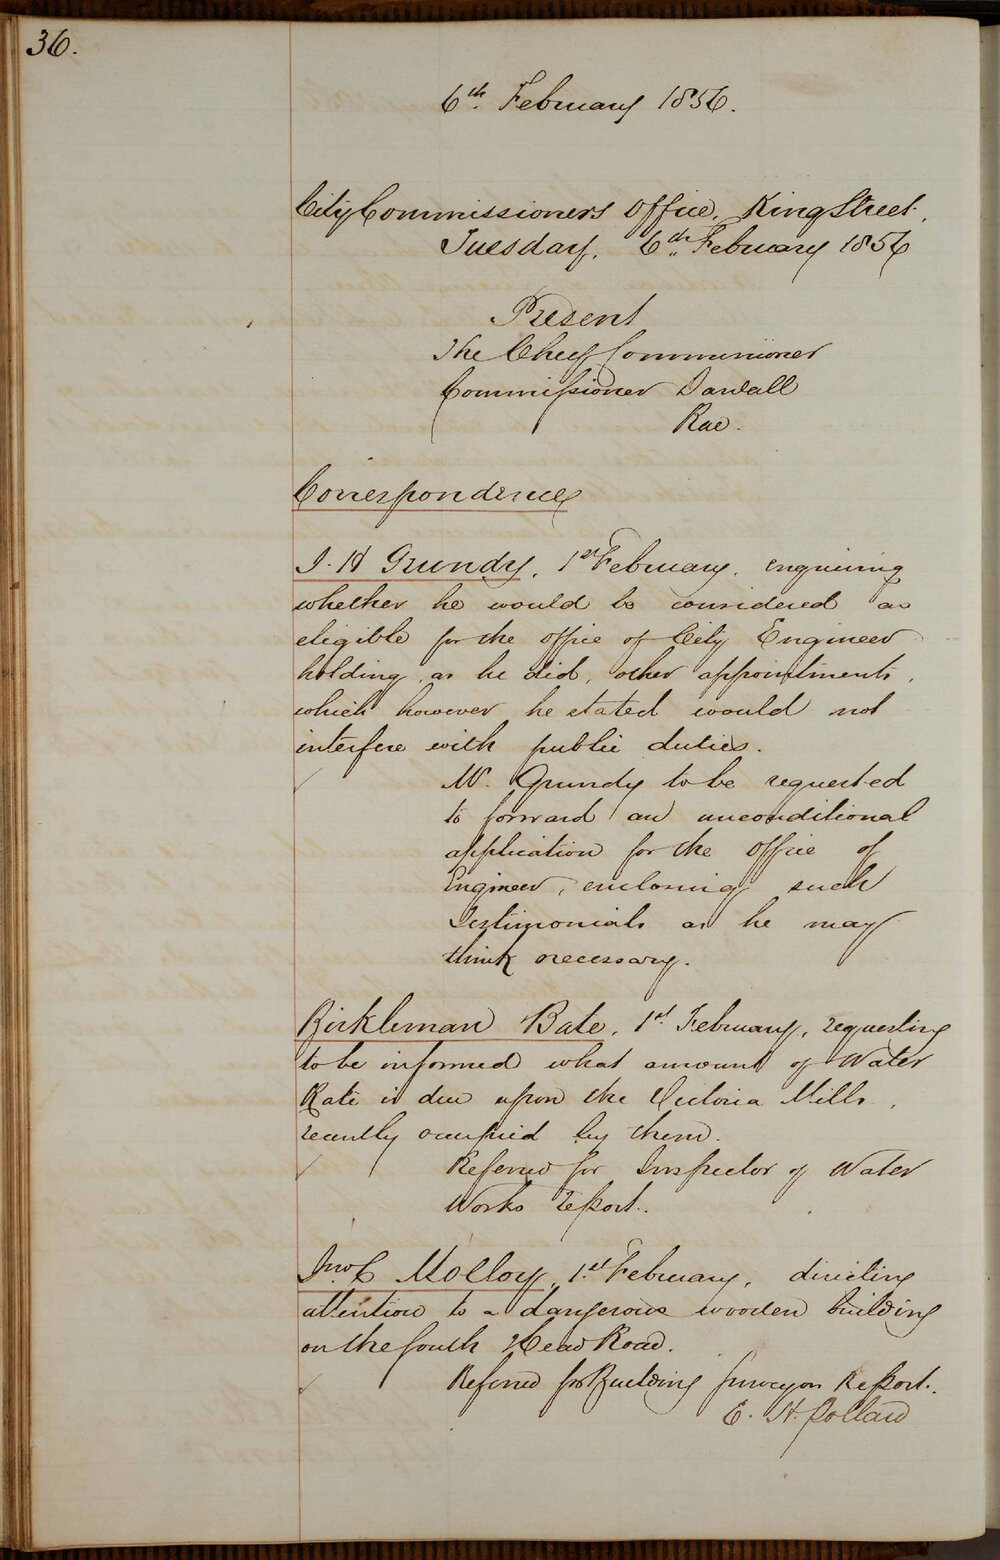 36.
6th. February 1856.
City Commissioners Office, King Street.
Tuesday, 6th February 1856
Present
The Chief Commissioner
Commissioner Darvall
Rae.
Correspondence
J. H Grundy, 1st February, enquiring
whether he would be considered as
eligible for the office of City Engineer
holding, as he did, other appointments,
which however he stated would not
interfere with public duties.
Mr. Grundy to be requested
to forward an unconditional
application for the office of
Engineer, enclosing such
Testimonials as he may
think necessary.
Kirkleman Bate, 1st February, requesting
to be informed what amount of Water
Rate is due upon the Victoria Mills,
recently occupied by them.
Referred for Inspector of Water
Works report.
Jno C Molloy, 1st February, directing
attention to a dangerous wooden building
on the South Head Road.
Referred for Building Surveyors Report.
E. H. Pollard